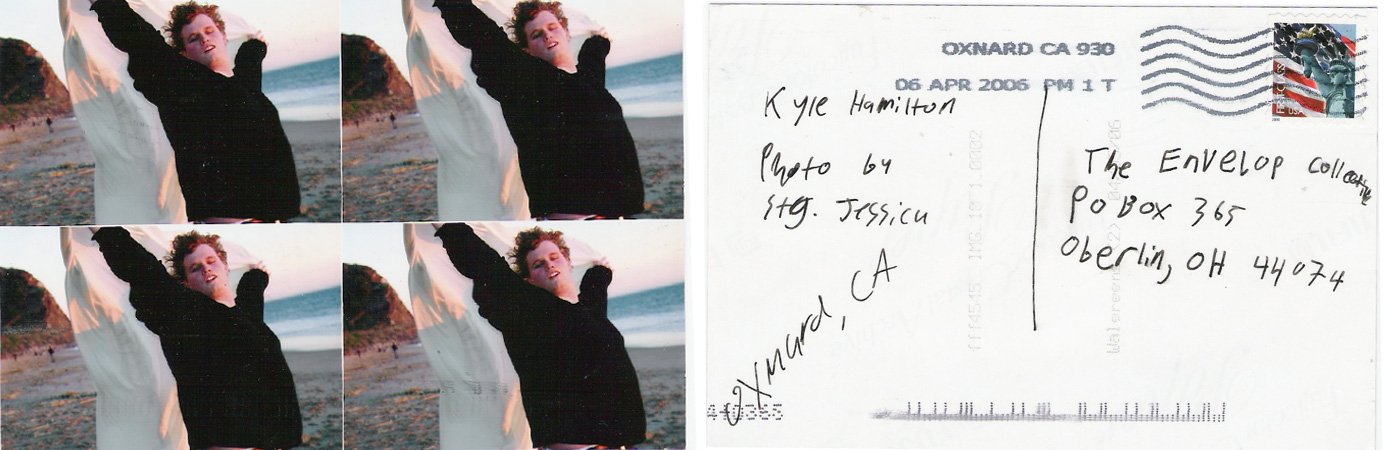 OXNARD CA 930
06 APR 2006 PM 1 T
Kyle Hamilton
Photo by
Stg. Jessica
Oxnard, CA
The Envelop Collective
PO Box 365
Oberlin, OH 44074
USA
440365